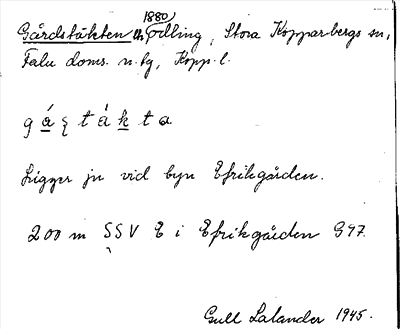 1880
Gårdstäkten odling, Stora Kopparbergs sn,
Falu doms. n. tg, Kopp. l.
g á ʂ t á k t a
Ligger ju vid byn Efrikgården.
200 m SSV E i Efrikgården G47.
Gull Lalander 1945.